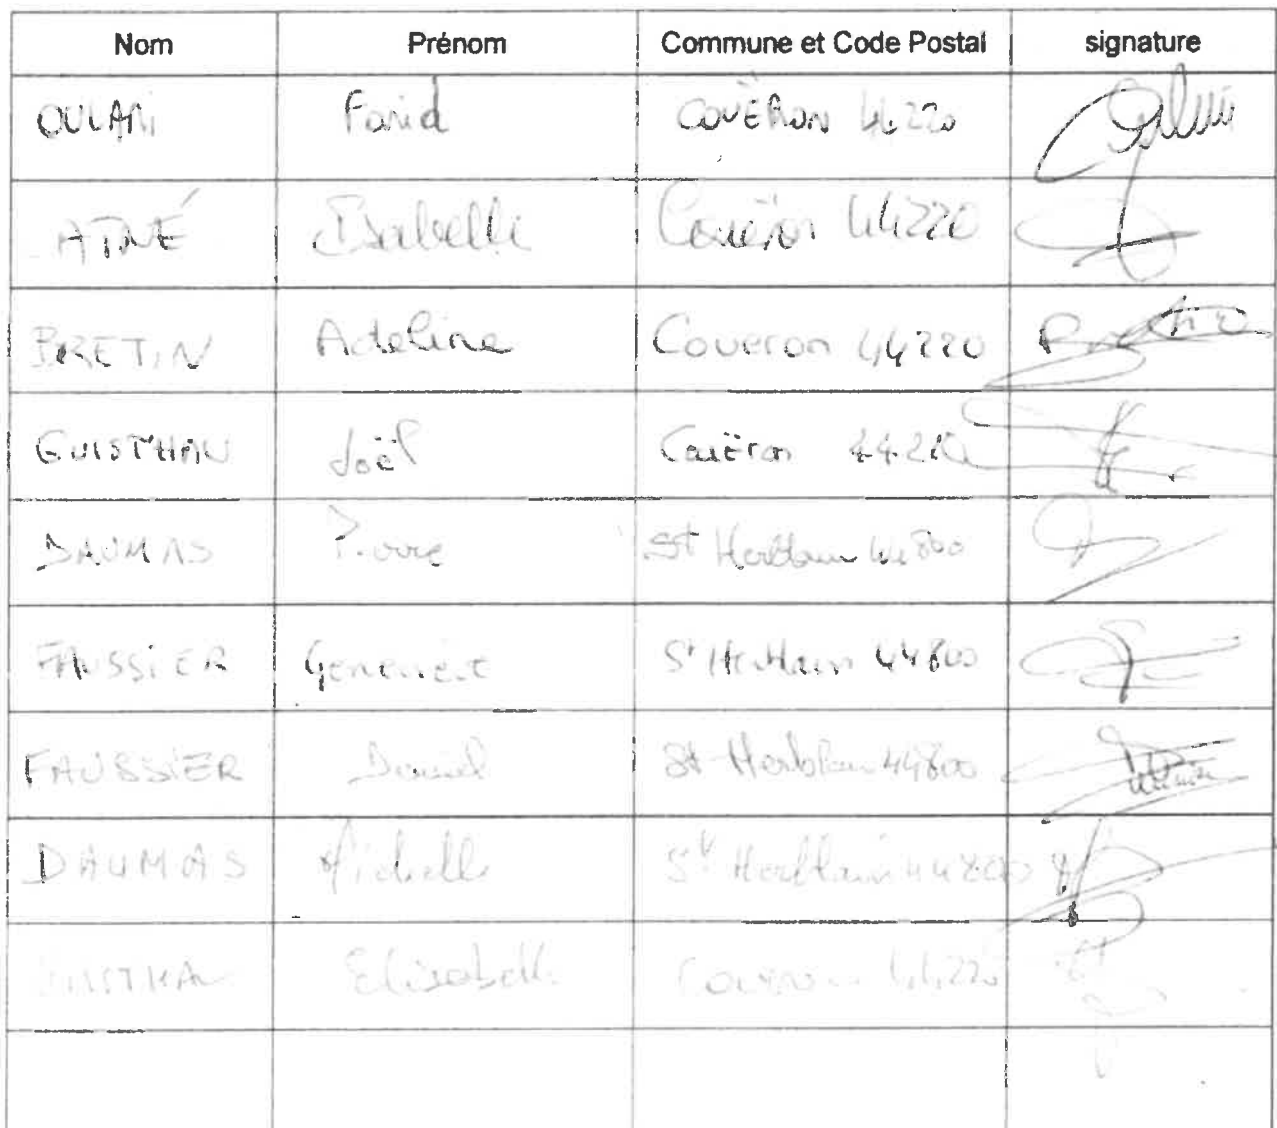 Nom Prénom Commune et Code Postal signature
OULAMI Farid COUËRON 44220
AIRÉ Isabelle Couëron 44220
BRETIN Adeline Coueron 44220
GUISTHAU Joël Couëron 44220
DAUMAS Pierre St Herblain 44800
FAUSSIER Geneviève St Herblain 44800
FAUSSIER Daniel St Herblain 44800
DAUMAS Michelle St Herblain 44800
Elisabeth Couëron 44220